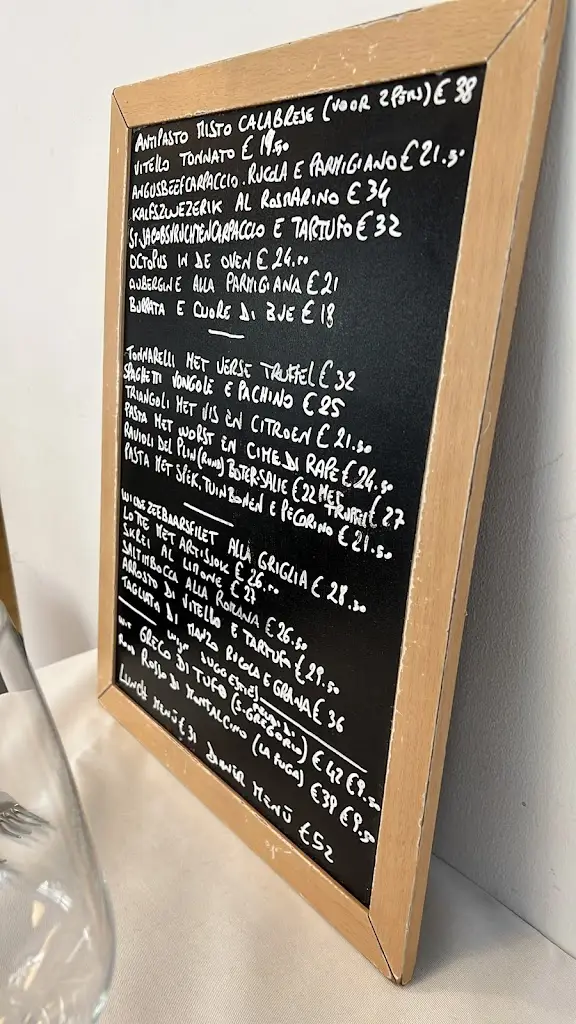 ANTIPASTO MISTO CALABRESE (VOOR 2 PERS) € 38
VITELLO TONNATO € 19.50
ANGUSBEEFCARPACCIO.RUCOLA E PARMIGIANO € 21.50
KALFSZWEZERIK AL ROSMARINO € 34
ST JACOBSVRUCHTENCARPACCIO E TARTUFO € 32
OCTOPUS IN DE OVEN € 24.00
AUBERGINE ALLA PARMIGIANA € 21
BURRATA E CUORE DI BUE € 18
TONNARELLI MET VERSE TRUFFEL € 32
SPAGHETTI VONGOLE E PACHINO € 25
TRIANGOLI MET VIS EN CITROEN € 21.50
PASTA MET WORST EN CIME DI RAPE € 24.50
RAVIOLI DEL PLIN (RUND) BOTER-SALIE € 22 MET TRUFFEL € 27
PASTA MET SPEK, TUINBONEN E PECORINO € 21.50
WILDE ZEEBAARSFILET ALLA GRIGLIA € 28.50
LOTTE MET ARTISJOK € 26.00
SKREI AL LIMONE € 27
SALTIMBOCCA ALLA ROMANA € 26.50
ARROSTO DI VITELLO E TARTUFO € 29.50
TAGLIATA DI MANZO RUCOLA E GRANA € 36
WIJN SUGGESTIES
WIT GRECO DI TUFO (S.GREGORIO) € 42 € 9.50
ROOD ROSSO DI MONTALCINO (LA FUGA) € 39 € 9.50
LUNCH MENÙ € 31 DINNER MENÙ € 52